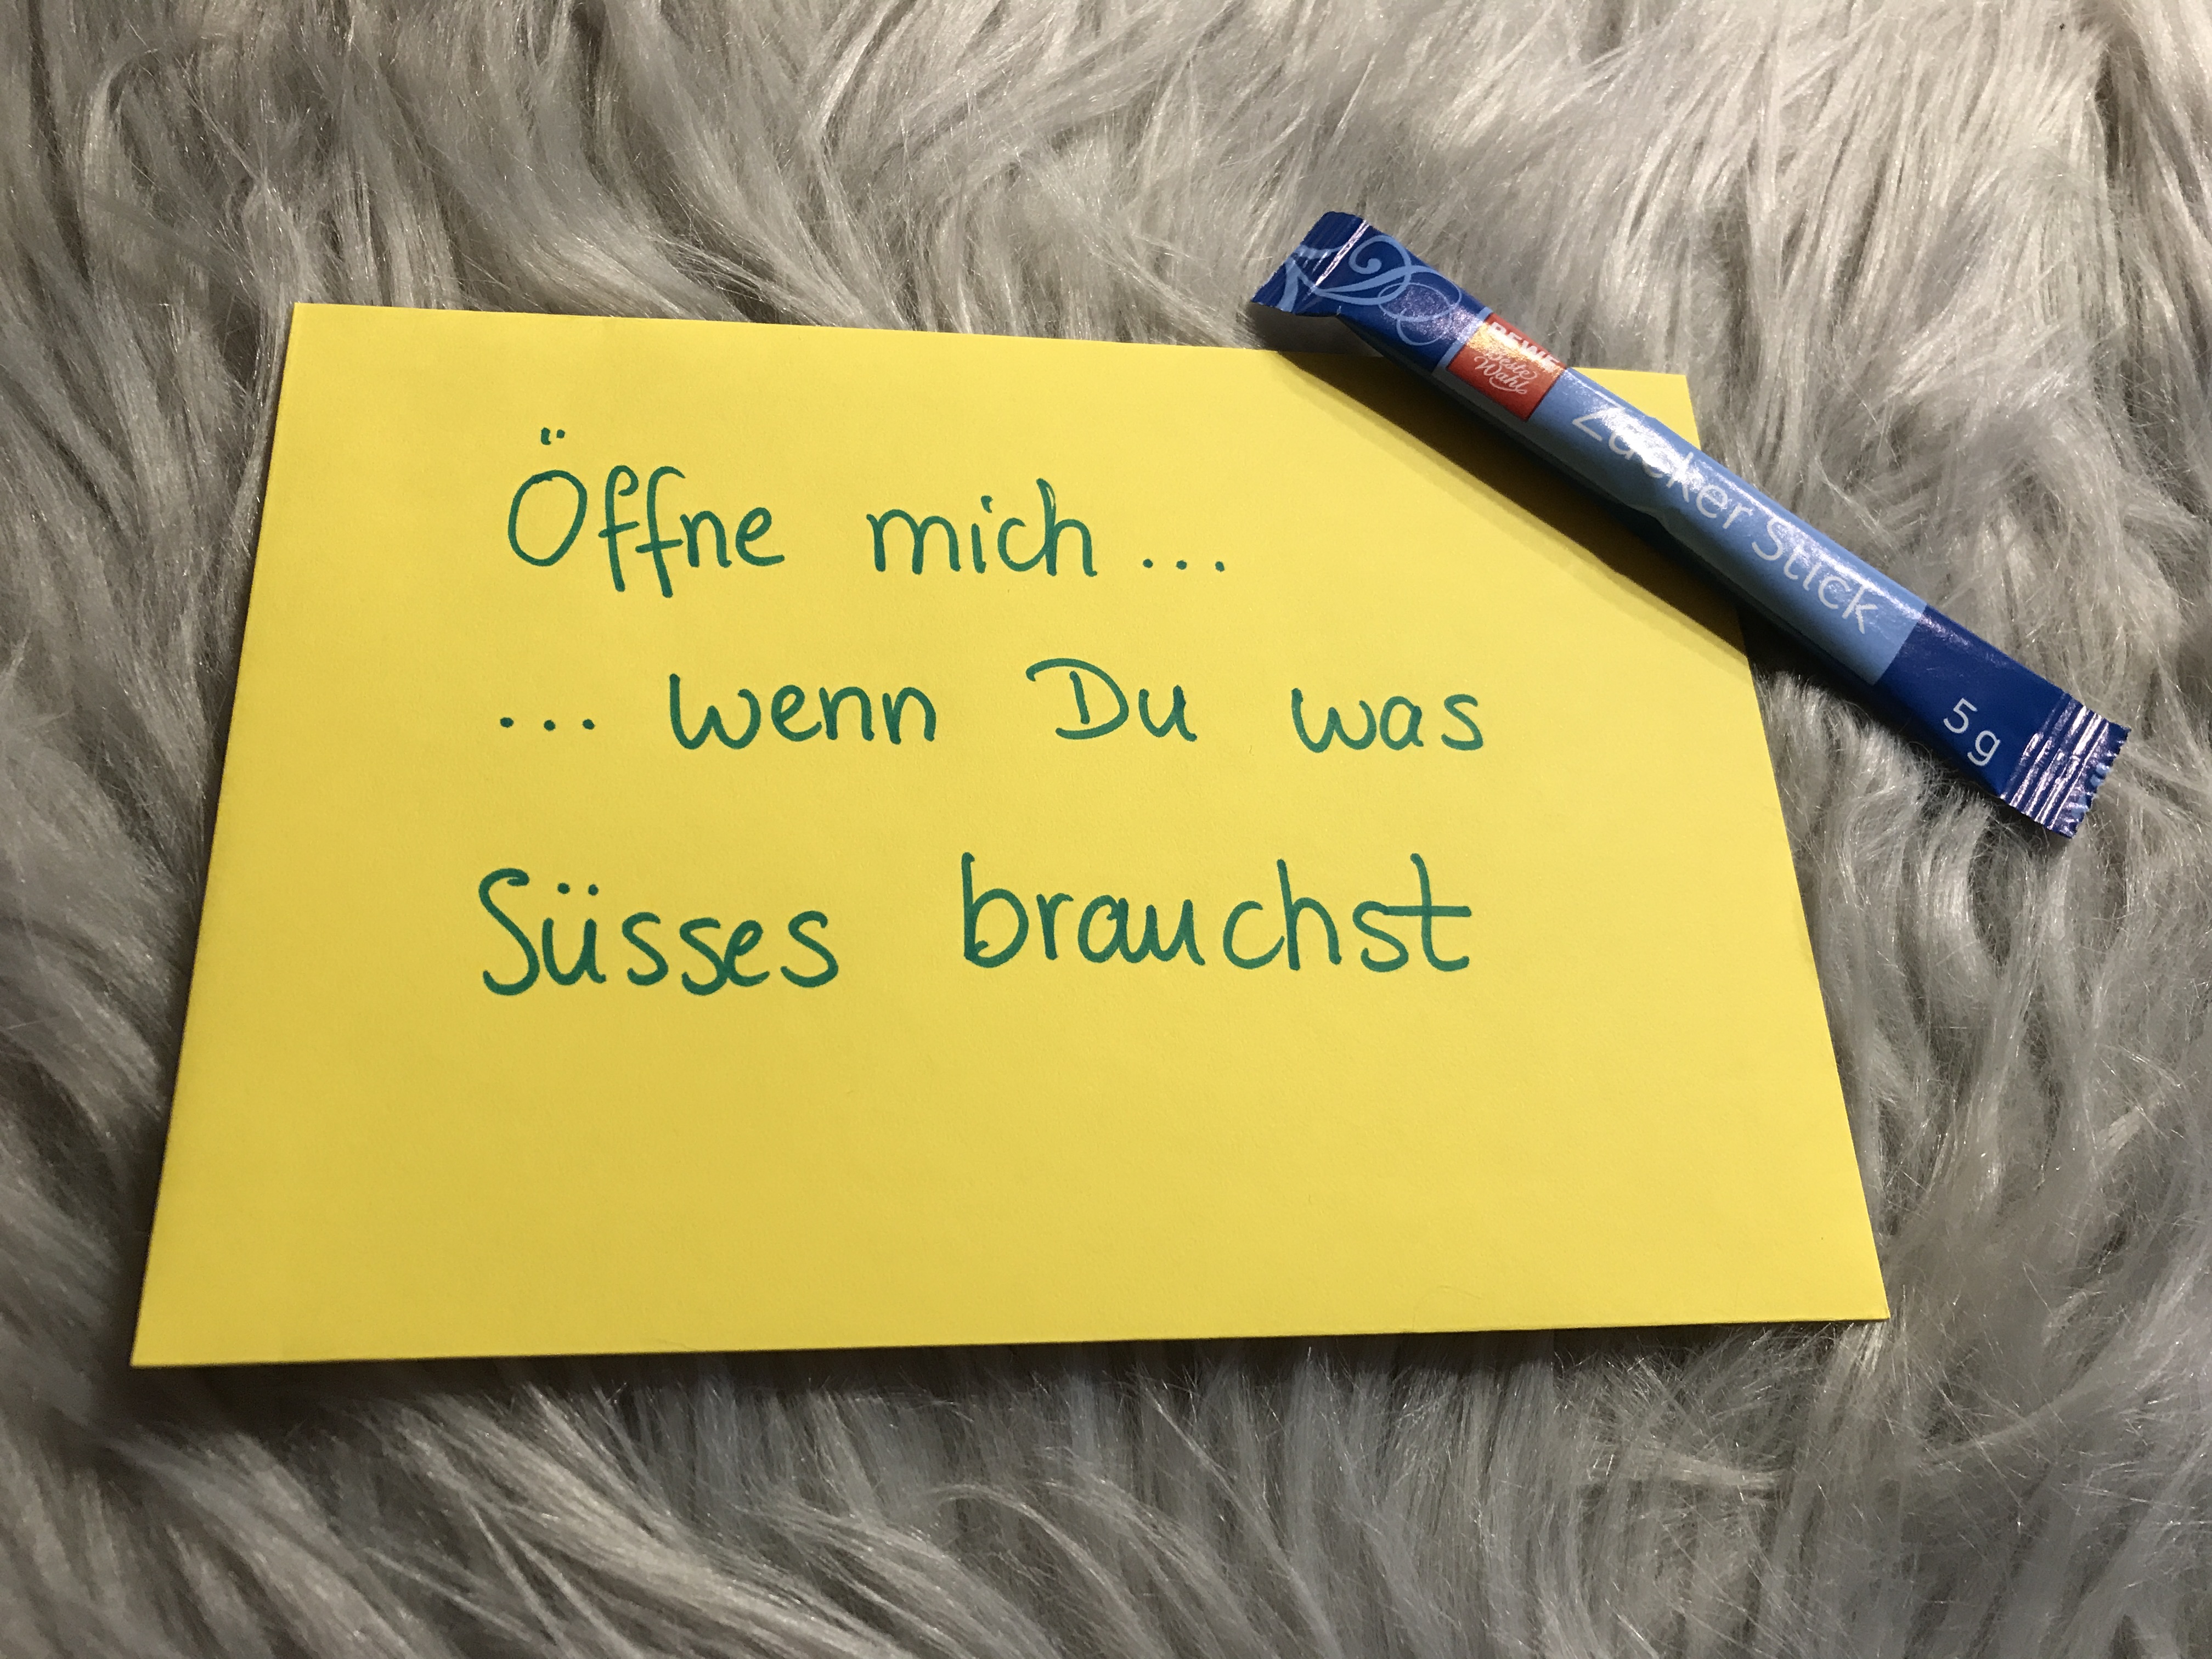 Öffne mich ...
... wenn Du was
Süsses brauchst
REWE
Beste
Wahl
Zucker Stick
5g